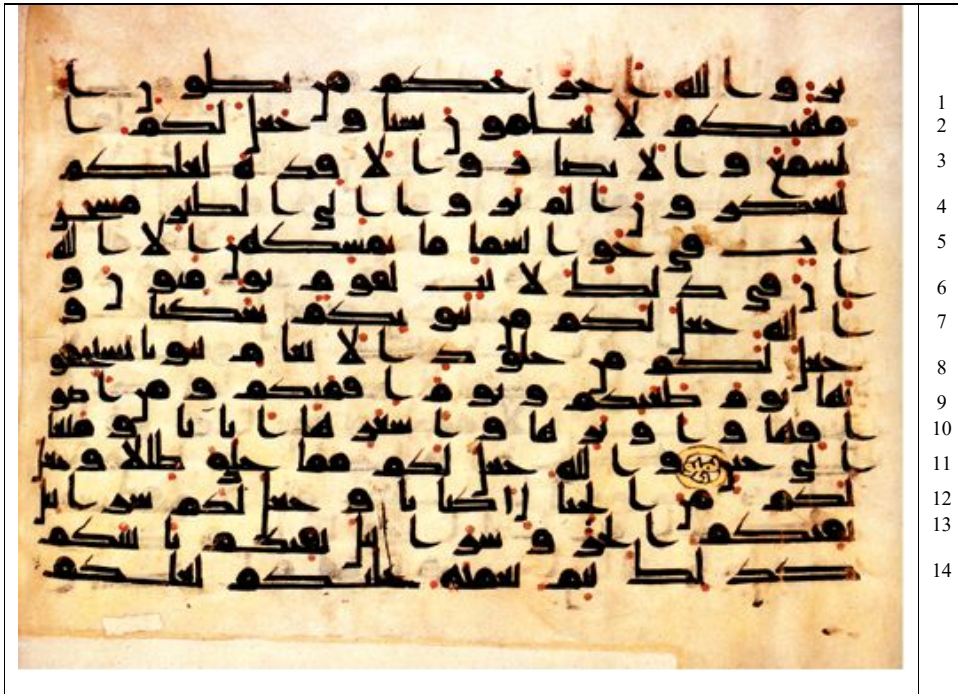 1 ير والله اخرجكم من بطون ا
2 مهتكم لا تعلمون شيا وجعل لكم ا
3 لسمع والابصا ر والافدة لعلكم
4 تشكرون الم يروا الى الطير مسخر
5 ات في جو السما ما يمسكهن الا الله
6 ان في ذلك لايت لقوم يومنون و
7 الله جعل لكم من بيوتكم سكنا و
8 جعل لكم من جلود الانعام بيوتا تستخفو
9 نها يوم ظعنكم ويوم اقمتكم ومن اصو
10 افها واوبرها واشعرها اثاثا ومتعا
11 الى حين والله جعل لكم مما خلق ظللا وجعل
12 لكم من الجبال اكنانا وجعل لكم سرابيل
13 تقيكم الحر وسرابيل تقيكم باسكم
14 كذلك يتم نعمته عليكم لعلكم